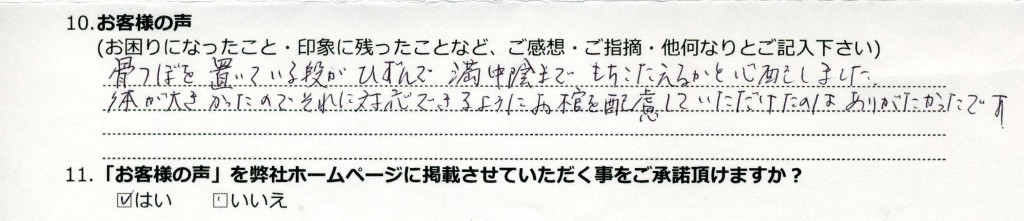 10.お客様の声
(お困りになったこと・印象に残ったことなど、ご感想・ご指摘・他何なりとご記入下さい)
骨つぼを置いている段がひずんで満中陰までもちこたえるかと心配しました
体が大きかったのでそれに対応できるようにお棺を配慮していただけたのはありがたかったです
11.「お客様の声」を弊社ホームページに掲載させていただく事をご承諾頂けますか？
☑はい □いいえ